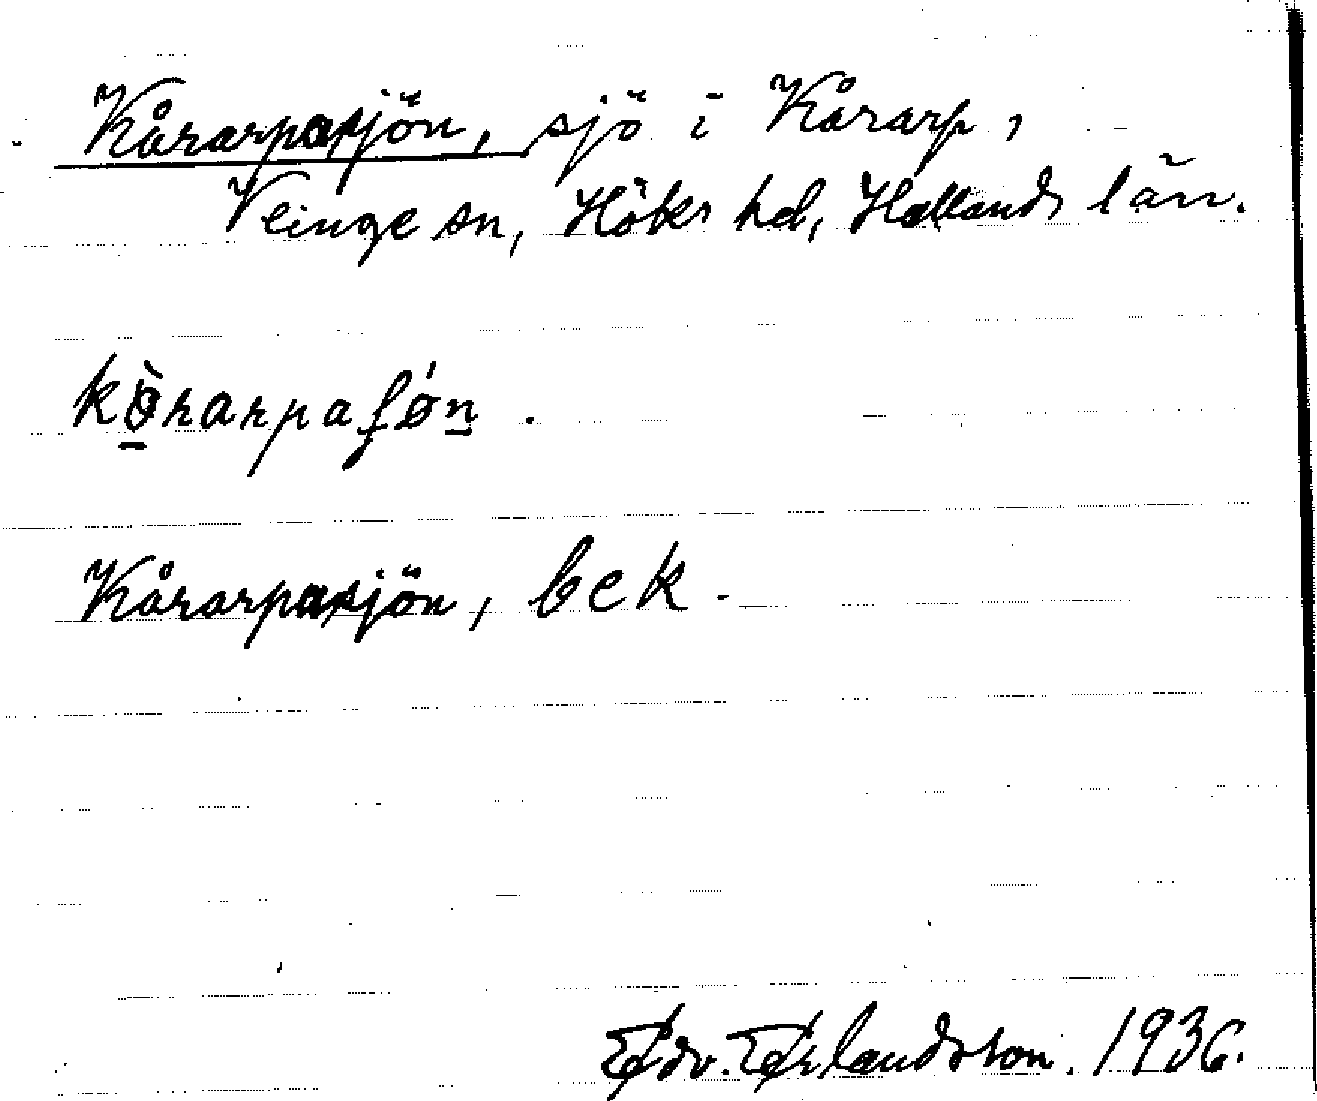 Kårarpasjön, sjö i Kårarp,
Veinge sn, Höks hd, Hallands län.
kö̀rarpaʃǿn.
Kårarpasjön, bek.
Edv. Erlandsson. 1936.